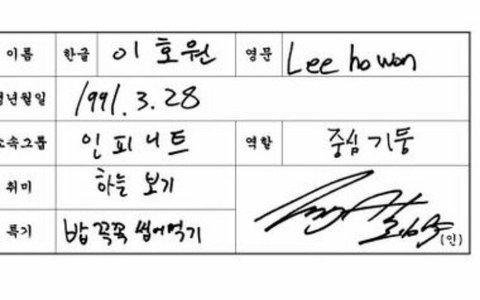 이름 한글 이호원 영문 Lee ho won
생년월일 1991. 3. 28
소속그룹 인피니트 역할 중심기둥
취미 하늘 보기
특기 밥 꼭꼭 씹어먹기
(인)